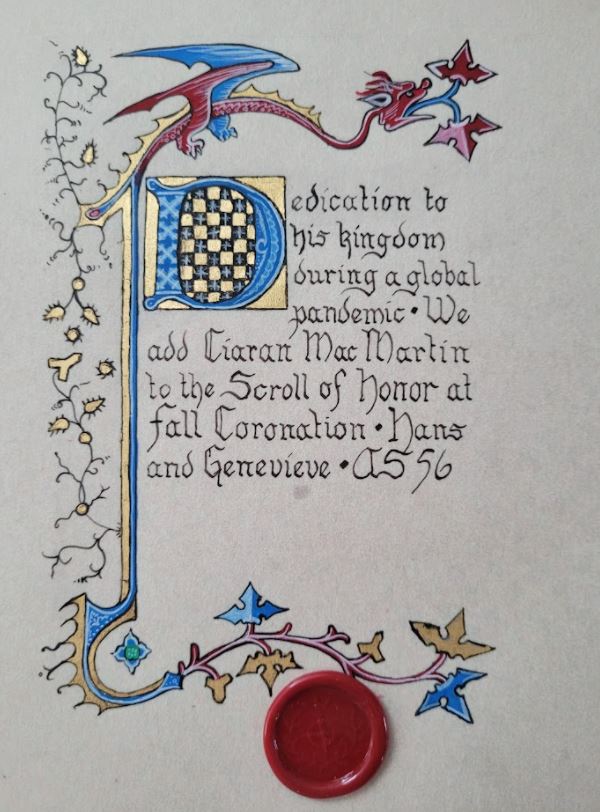 Dedication to
his kingdom
during a global
pandemic · We
add Ciaran Mac Martin
to the Scroll of Honor at
fall Coronation · Hans
and Genevieve · AS 56